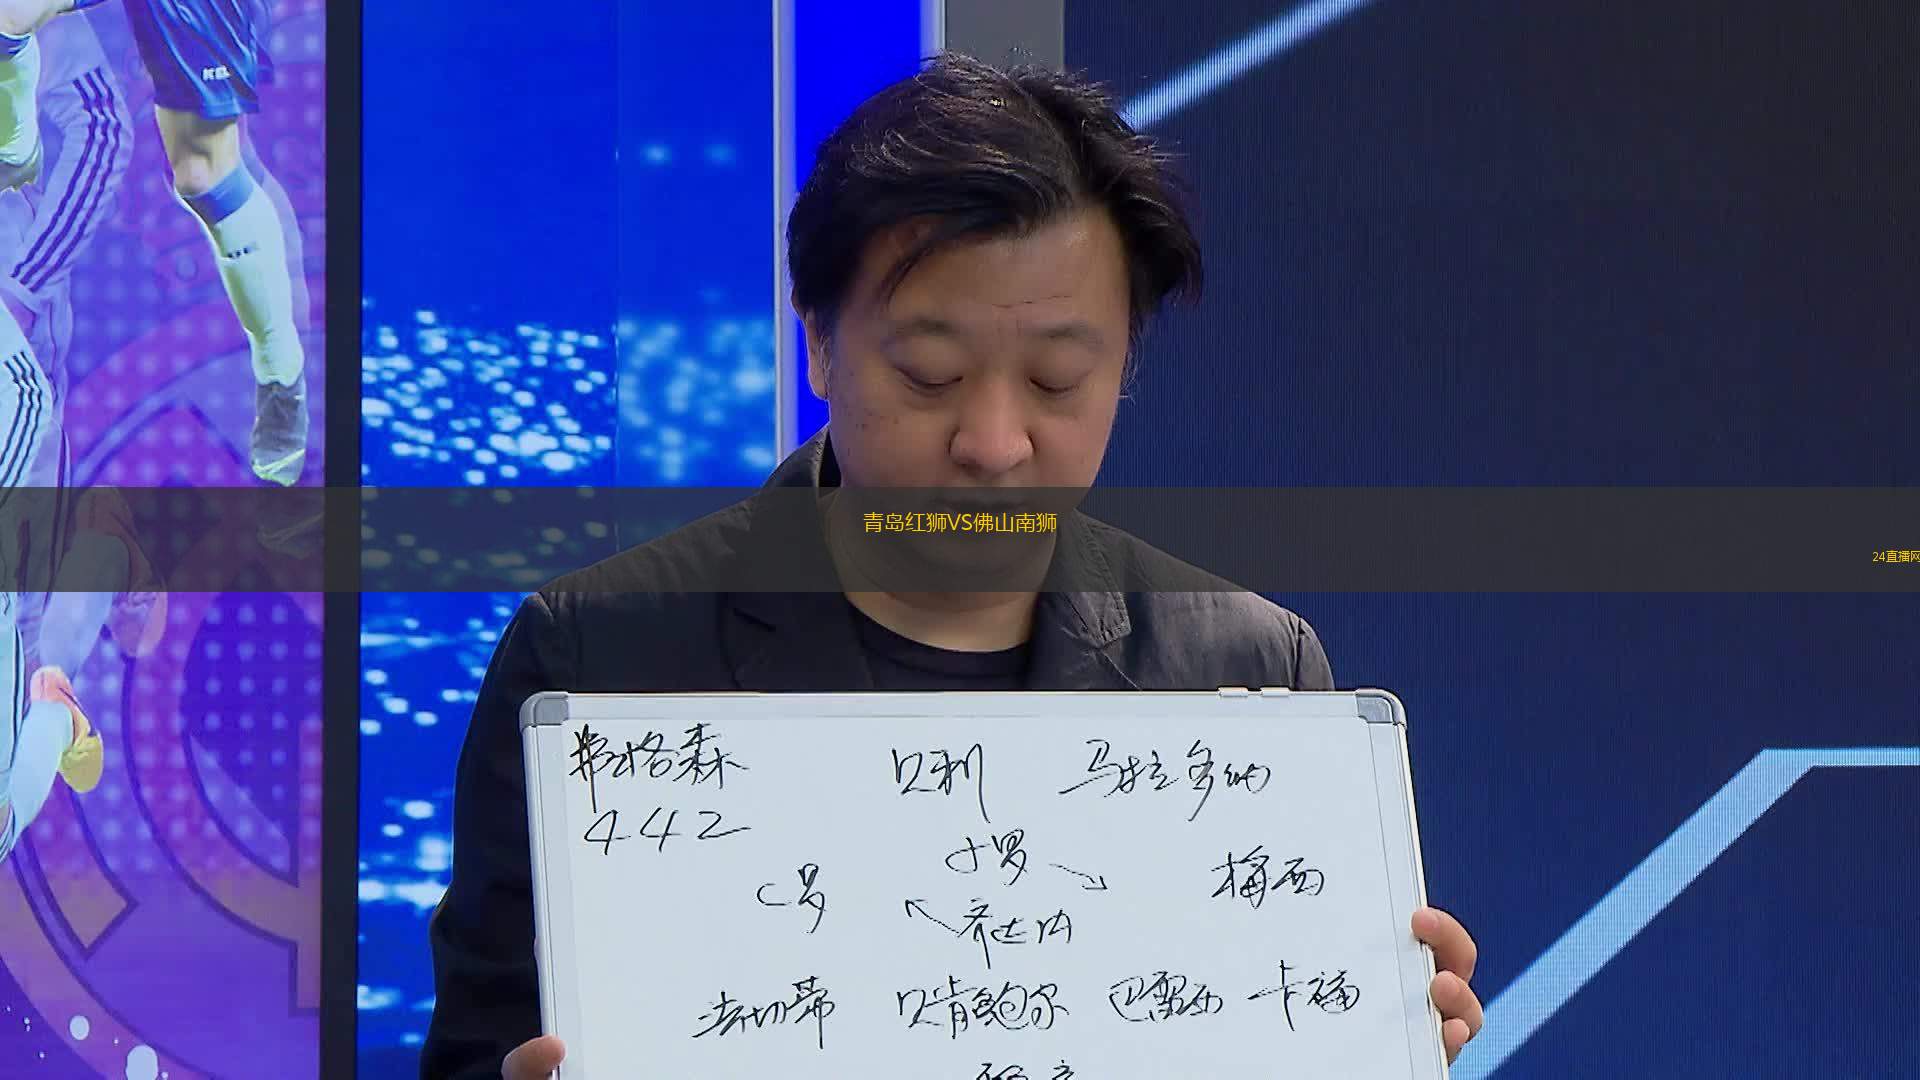 青岛红狮VS佛山南狮
24直播网
弗格森 贝利 马拉多纳
442
小罗
C罗 梅西
齐达内
法切蒂 贝肯鲍尔 巴雷西 卡福